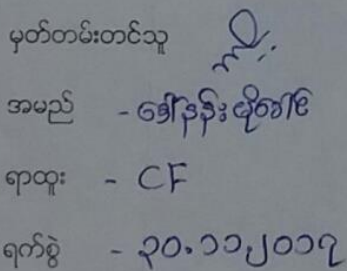 မှတ်တမ်းတင်သူ
အမည် - ဒေါ်နန်းဗိုဓေါင်
ရာထူး - CF
ရက်စွဲ - ၃၀.၁၁.၂၀၁၇